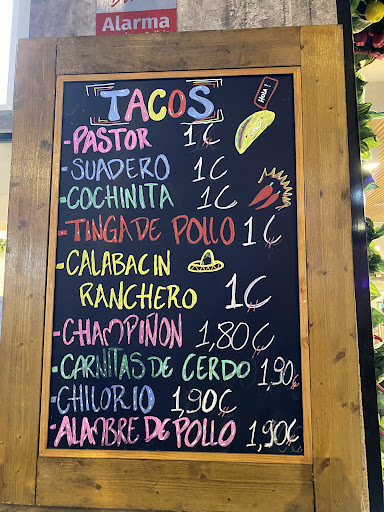 Alarma
TACOS
HOLA!
-PASTOR 1€
-SUADERO 1€
-COCHINITA 1€
-TINGA DE POLLO 1€
-CALABACIN
RANCHERO 1€
-CHAMPIÑON 1,80€
-CARNITAS DE CERDO 1,90€
-CHILORIO 1,90€
-ALAMBRE DE POLLO 1,90€